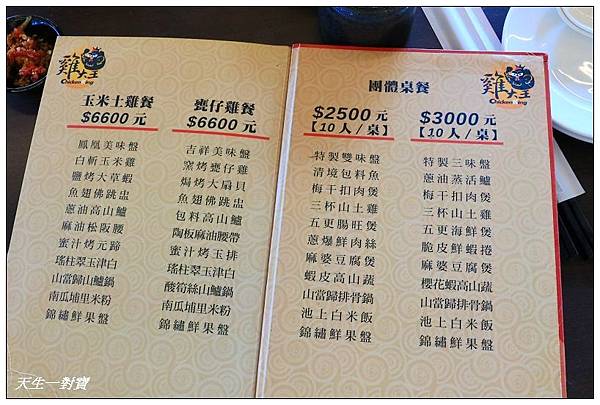 雞大王
Chicken King
玉米土雞餐
$6600 元
鳳凰美味盤
白斬玉米雞
鹽烤大草蝦
魚翅佛跳盅
蔥油高山鱸
麻油松阪腰
蜜汁烤元蹄
瑤柱翠玉津白
山當歸山鱸鍋
南瓜埔里米粉
錦繡鮮果盤
甕仔雞餐
$6600 元
吉祥美味盤
窯烤甕仔雞
焗烤大扇貝
魚翅佛跳盅
包料高山鱸
陶板麻油腰帶
蜜汁烤玉排
瑤柱翠玉津白
酸筍絲山鱸鍋
南瓜埔里米粉
錦繡鮮果盤
雞大王
Chicken King
團體桌餐
$2500 元
【10 人 / 桌】
特製雙味盤
清境包料魚
梅干扣肉煲
三杯山土雞
五更腸旺煲
蔥爆鮮肉絲
麻婆豆腐煲
蝦皮高山蔬
山當歸排骨鍋
池上白米飯
錦繡鮮果盤
$3000 元
【10 人 / 桌】
特製三味盤
蔥油蒸活鱸
梅干扣肉煲
三杯山土雞
五更海鮮煲
脆皮鮮蝦捲
麻婆豆腐煲
櫻花蝦高山蔬
山當歸排骨鍋
池上白米飯
錦繡鮮果盤
天生一對寶